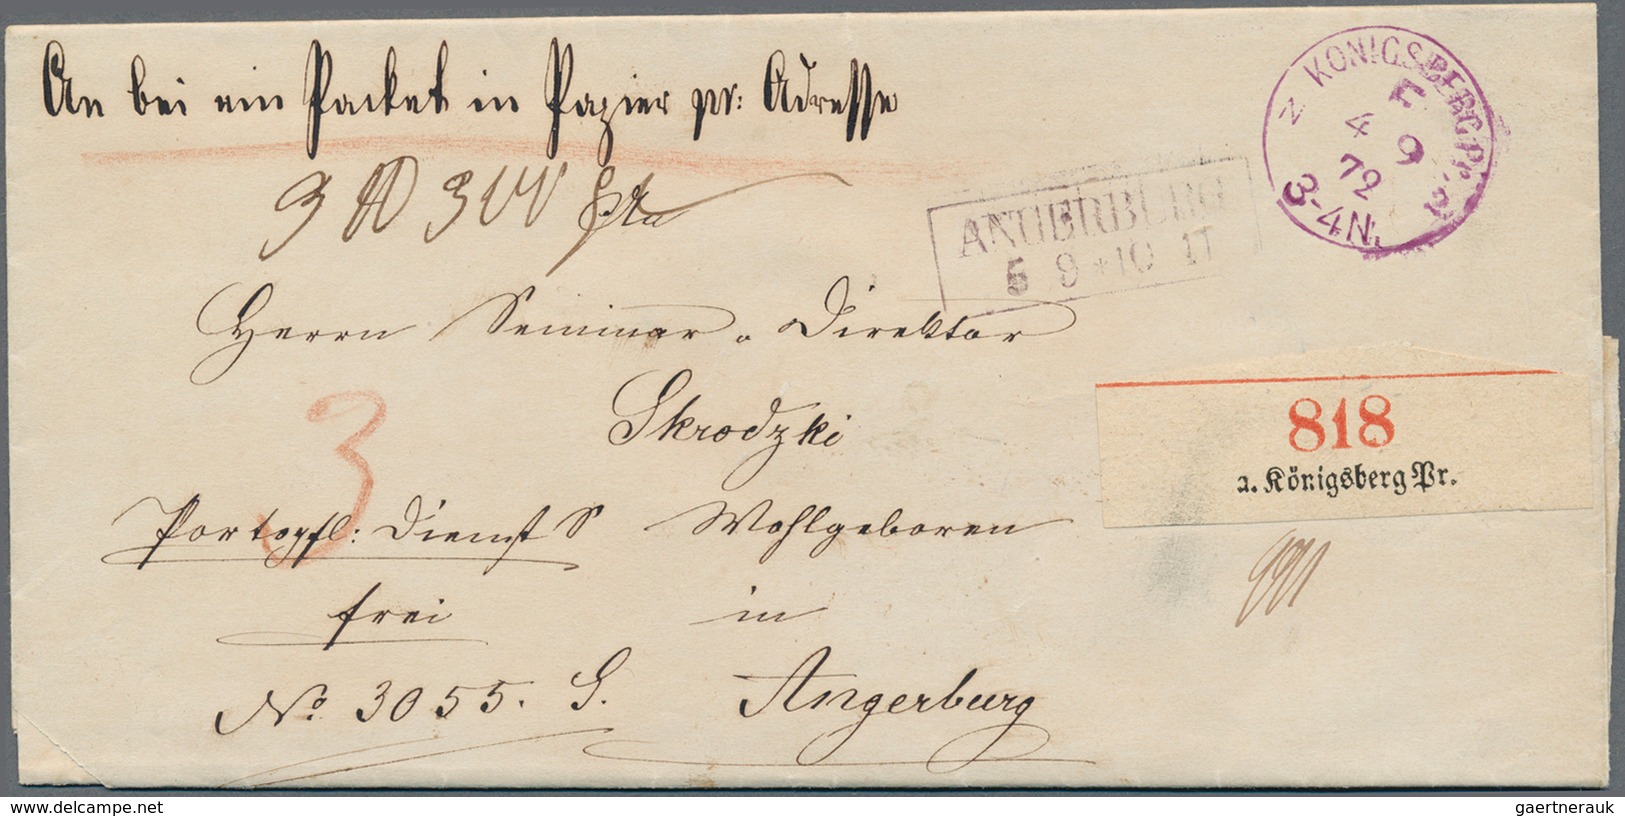 An bei ein Packet in Papier pr: Adresse
KÖNIGSBERG PR.
E
4 9
72
3-4N.
ANGERBURG
5 9 * 10 1T
Herrn Seminar-Direktor
Skrodzki
3
818
a. Königsberg Pr.
Portopfl: Dienst S Wohlgeboren
frei in
No. 3055. S. Angerburg
www.delcampe.net
gaertnerauk